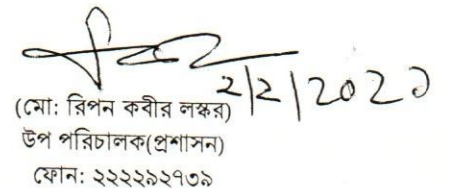 ২/২/২০২১
(মো: রিপন কবীর লস্কর)
উপ পরিচালক(প্রশাসন)
ফোন: ২২২২৯২৭৩৯